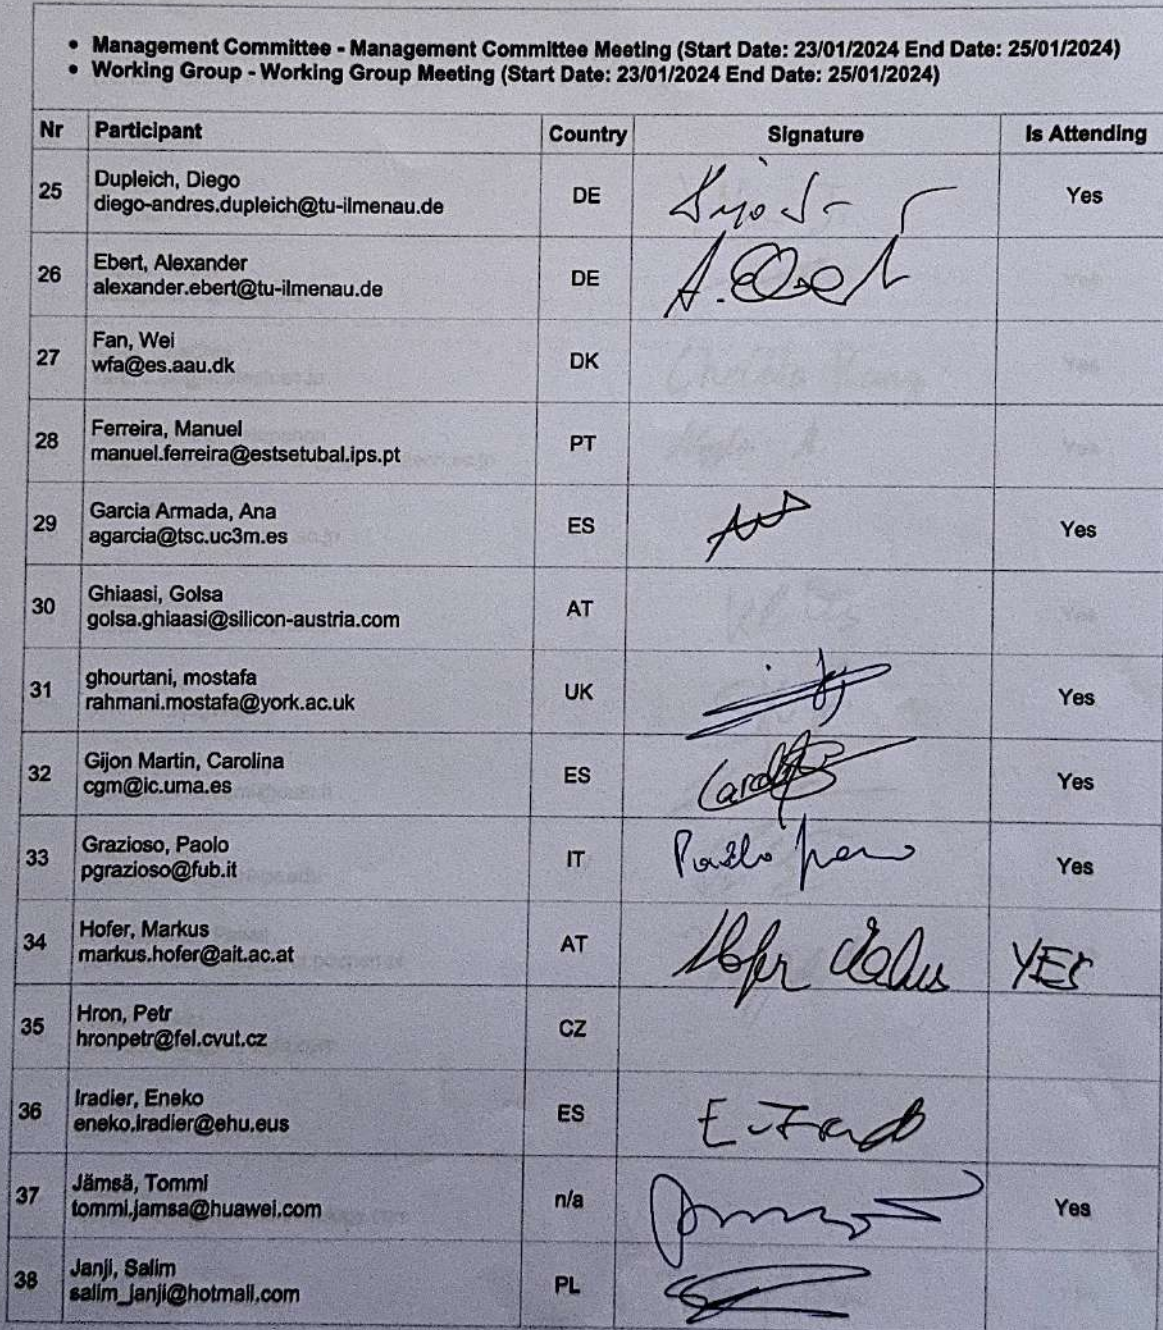 • Management Committee - Management Committee Meeting (Start Date: 23/01/2024 End Date: 25/01/2024)
• Working Group - Working Group Meeting (Start Date: 23/01/2024 End Date: 25/01/2024)
Nr Participant Country Signature Is Attending
25 Dupleich, Diego DE Yes
diego-andres.dupleich@tu-ilmenau.de
26 Ebert, Alexander DE A. Ebert
alexander.ebert@tu-ilmenau.de
27 Fan, Wei DK
wfa@es.aau.dk
28 Ferreira, Manuel PT
manuel.ferreira@estsetubal.ips.pt
29 Garcia Armada, Ana ES Yes
agarcia@tsc.uc3m.es
30 Ghiaasi, Golsa AT
golsa.ghiaasi@silicon-austria.com
31 ghourtani, mostafa UK Yes
rahmani.mostafa@york.ac.uk
32 Gijon Martin, Carolina ES Yes
cgm@ic.uma.es
33 Grazioso, Paolo IT Paolo Yes
pgrazioso@fub.it
34 Hofer, Markus AT Hofer YES
markus.hofer@ait.ac.at
35 Hron, Petr CZ
hronpetr@fel.cvut.cz
36 Iradier, Eneko ES
eneko.iradier@ehu.eus
37 Jämsä, Tommi n/a Yes
tommi.jamsa@huawei.com
38 Janji, Salim PL
salim_janji@hotmail.com